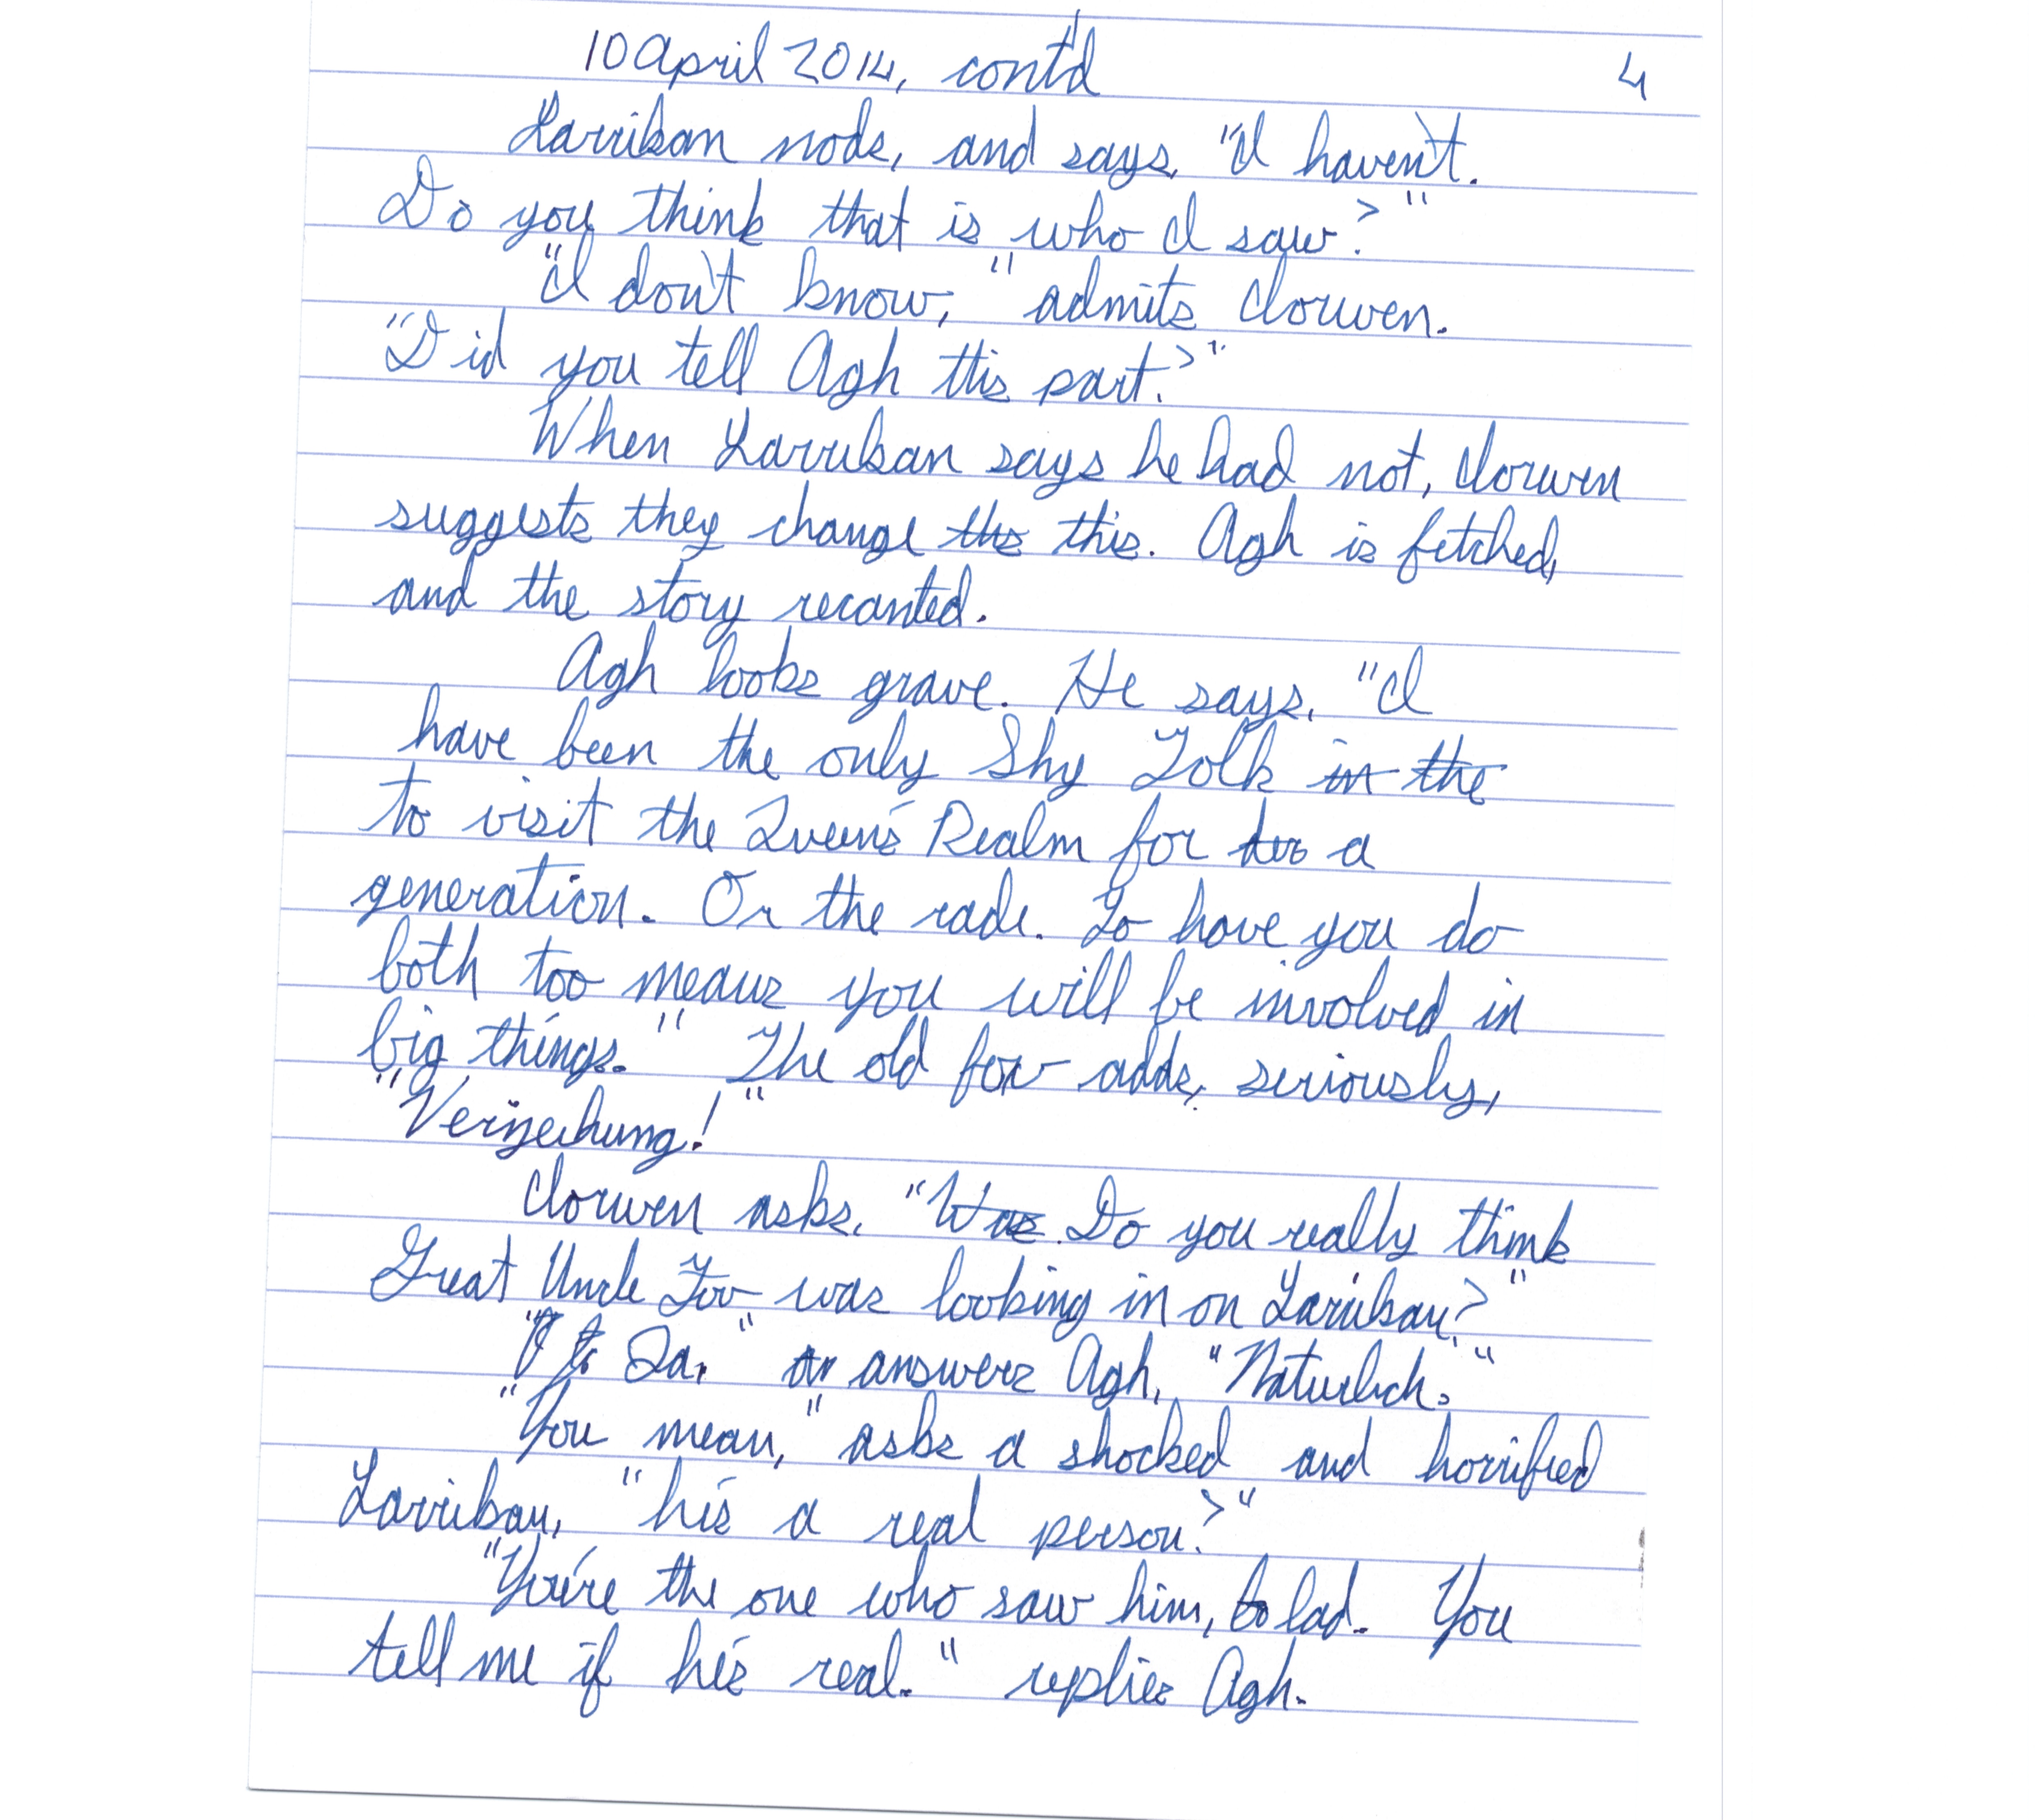 10 April 2014, cont'd 4
Larrikan nods, and says, "I haven't.
Do you think that is who I saw?"
"I don't know," admits Clorwen.
"Did you tell Agh this part?"
When Larrikan says he had not, Clorwen
suggests they change the this. Agh is fetched,
and the story recanted.
Agh looks grave. He says, "I
have been the only Shy Folk in the
to visit the Queen's Realm for two a
generation. Or the rade. To have you do
both too means you will be involved in
big things." The old fox adds, seriously,
"Verzeihung!"
Clorwen asks, "Was Do you really think
Great Uncle Fox was looking in on Larrikan?"
Ja," an answers Agh, "Naturlich."
"You mean," asks a shocked and horrified
Larrikan, "he's a real person?"
"You're the one who saw him, lad. You
tell me if he's real." replies Agh.